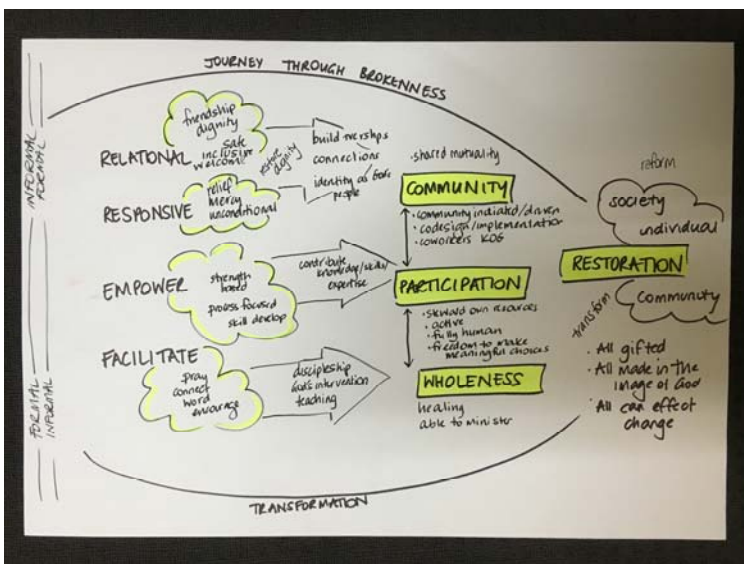 JOURNEY THROUGH BROKENNESS
INFORMAL
FORMAL
RELATIONAL
friendship
dignity
safe
inclusist
welcome
restore
dignity
build merships
connections
identity as Gods
people
RESPONSIVE
relief
mercy
unconditional
EMPOWER
strength
based
process focused
skill develop
contribute
knowledge/skills/
expertise
FACILITATE
pray
connect
word
encourage
discipleship
God's intervention
teaching
FORMAL
INFORMAL
·shared mutuality
COMMUNITY
·community indiated/driven
·codesign/implementation
·coworkers KOG
PARTICIPATION
·steward own resources
·active
·fully human
·freedom to make
meaningful choices
WHOLENESS
healing
able to minister
reform
society
individual
RESTORATION
community
transform
·All gifted
·All made in the
image of God
·All can effect
change
TRANSFORMATION